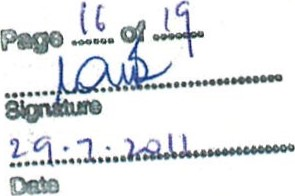 Page 16 of 19
Signature
29.7.2011
Date